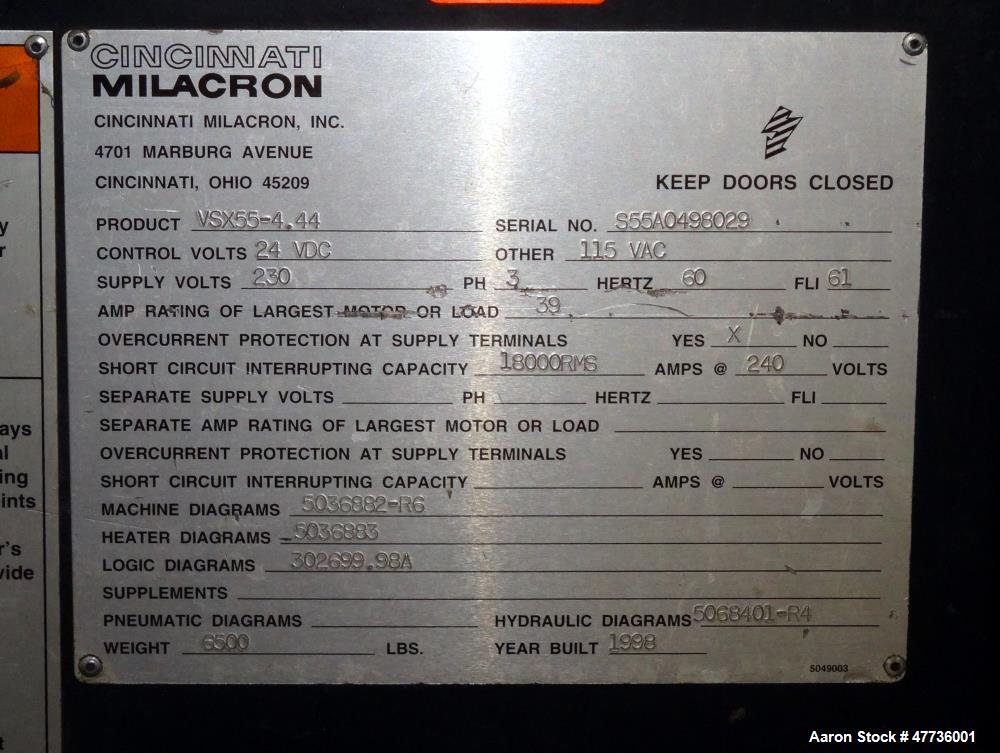 CINCINNATI
MILACRON
CINCINNATI MILACRON, INC.
4701 MARBURG AVENUE
CINCINNATI, OHIO 45209
KEEP DOORS CLOSED
PRODUCT VSX55-4.44 SERIAL NO. S55A0498029
CONTROL VOLTS 24 VDC OTHER 115 VAC
SUPPLY VOLTS 230 PH 3 HERTZ 60 FLI 61
AMP RATING OF LARGEST MOTOR OR LOAD 39
OVERCURRENT PROTECTION AT SUPPLY TERMINALS YES X NO
SHORT CIRCUIT INTERRUPTING CAPACITY 18000RMS AMPS @ 240 VOLTS
SEPARATE SUPPLY VOLTS PH HERTZ FLI
SEPARATE AMP RATING OF LARGEST MOTOR OR LOAD
OVERCURRENT PROTECTION AT SUPPLY TERMINALS YES NO
SHORT CIRCUIT INTERRUPTING CAPACITY AMPS @ VOLTS
MACHINE DIAGRAMS 5036882-R6
HEATER DIAGRAMS 5036883
LOGIC DIAGRAMS 302699.98A
SUPPLEMENTS
PNEUMATIC DIAGRAMS HYDRAULIC DIAGRAMS 5068401-R4
WEIGHT 6500 LBS. YEAR BUILT 1998
5049003
Aaron Stock # 47736001